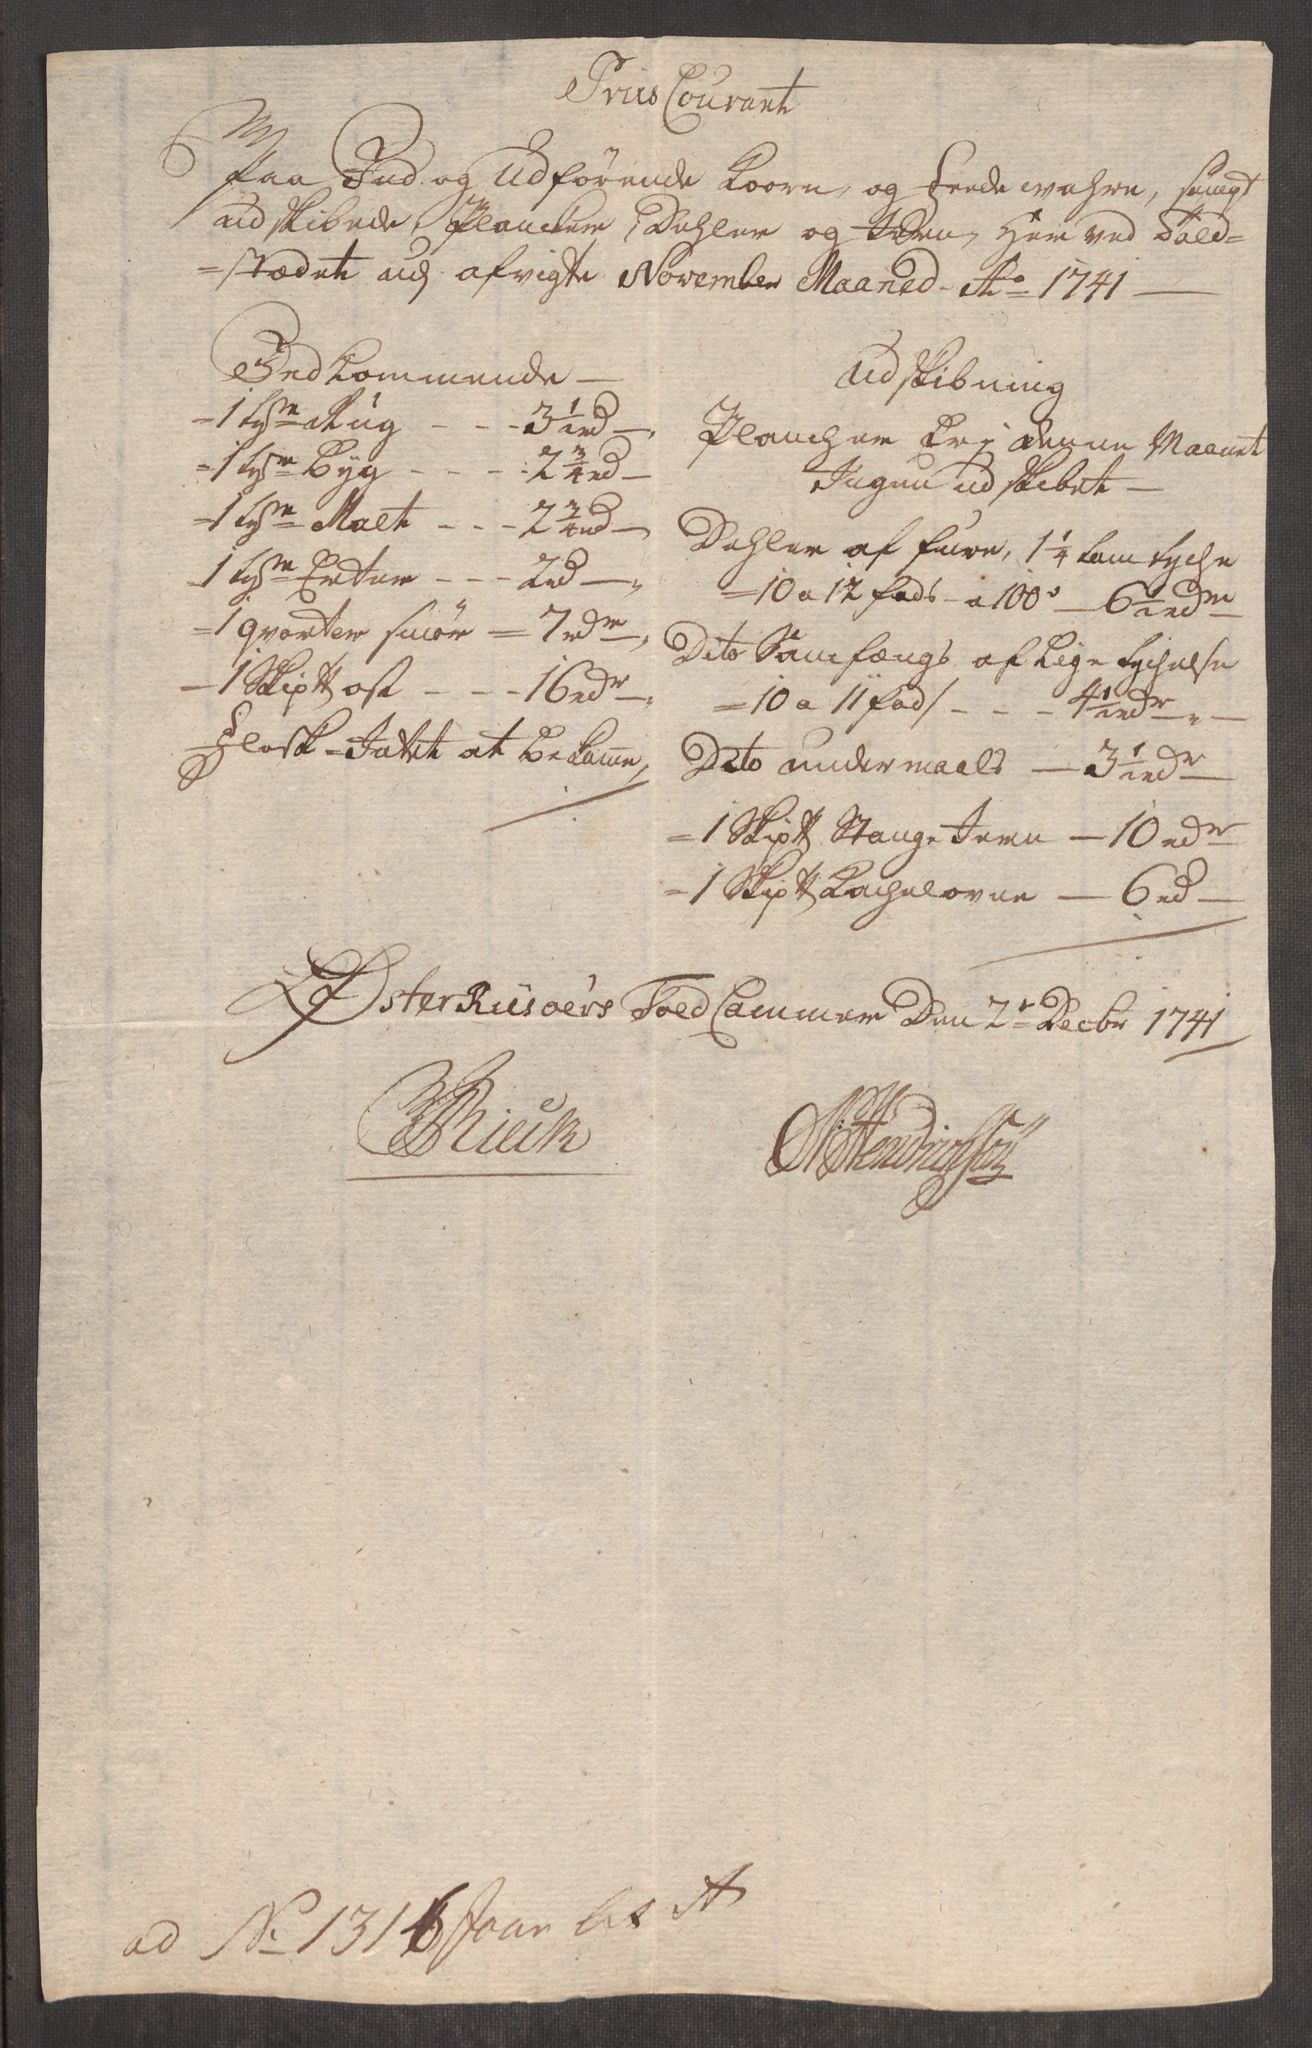 Priis Courant
Paa Ind og Udførende Koorn, og feede wahre, sampt
udskibede Plancker, Dehler og Jern, Her ved Told=
=stædet udj afvigte November Maaned Ao 1741
Indkommende
1 tønne Rug - - - 3 1/2 rd
1 tønne Byg - - - 2 3/4 rd
1 tønne Malt - - - 2 3/4 rd
1 tønne Erter - - - 2 rd
1 qvarter smør = 7 rdr
1 Skip℔ ost - - - 16 rdr
Flesk Intet at bekomme
Udskibning
Plancher Erj denne Maanet
Ingen udskibet
Dehler af furre, 1 1/4 tom tyche
10 a 12 fods a 100de 6 1/2 rdr
Dito Samfængs af lige tychelse
10 a 11 fods - - - 4 1/2 rdr
Dito undermaals 3 1/2 rdr
1 Skip℔ Stange Jern 10 rdr
1 Skip℔ Kachelovne 6 rd
Øster Riisøers Told Cammer Den 2de Decbr 1741
Rieck
Hendrichsøn
ad No 1316 Jour Lit A